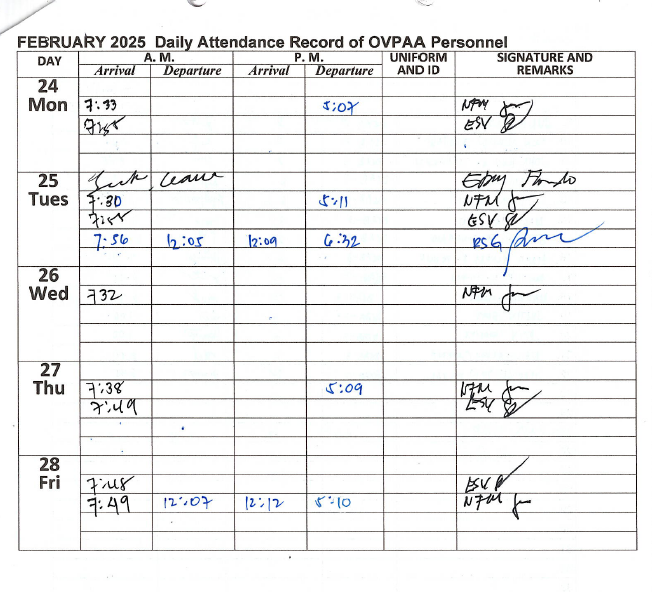 FEBRUARY 2025 Daily Attendance Record of OVPAA Personnel
DAY A. M. P. M. UNIFORM AND ID SIGNATURE AND REMARKS
Arrival Departure Arrival Departure
24 Mon
7:33 5:07 NFM
7:55 ESV
25 Tues
Sick Leave
7:30 5:11 NFM
7:55 ESV
7:56 12:05 12:09 6:32 RSG
26 Wed
732 NFM
27 Thu
7:38 5:09 NFM
7:49 ESV
28 Fri
7:48 ESV
7:49 12:07 12:12 5:10 NFM